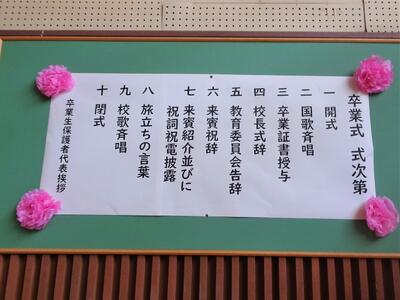 卒業式 式次第
一 開式
二 国歌斉唱
三 卒業証書授与
四 校長式辞
五 教育委員会告辞
六 来賓祝辞
七 来賓紹介並びに
祝詞祝電披露
八 旅立ちの言葉
九 校歌斉唱
十 閉式
卒業生保護者代表挨拶